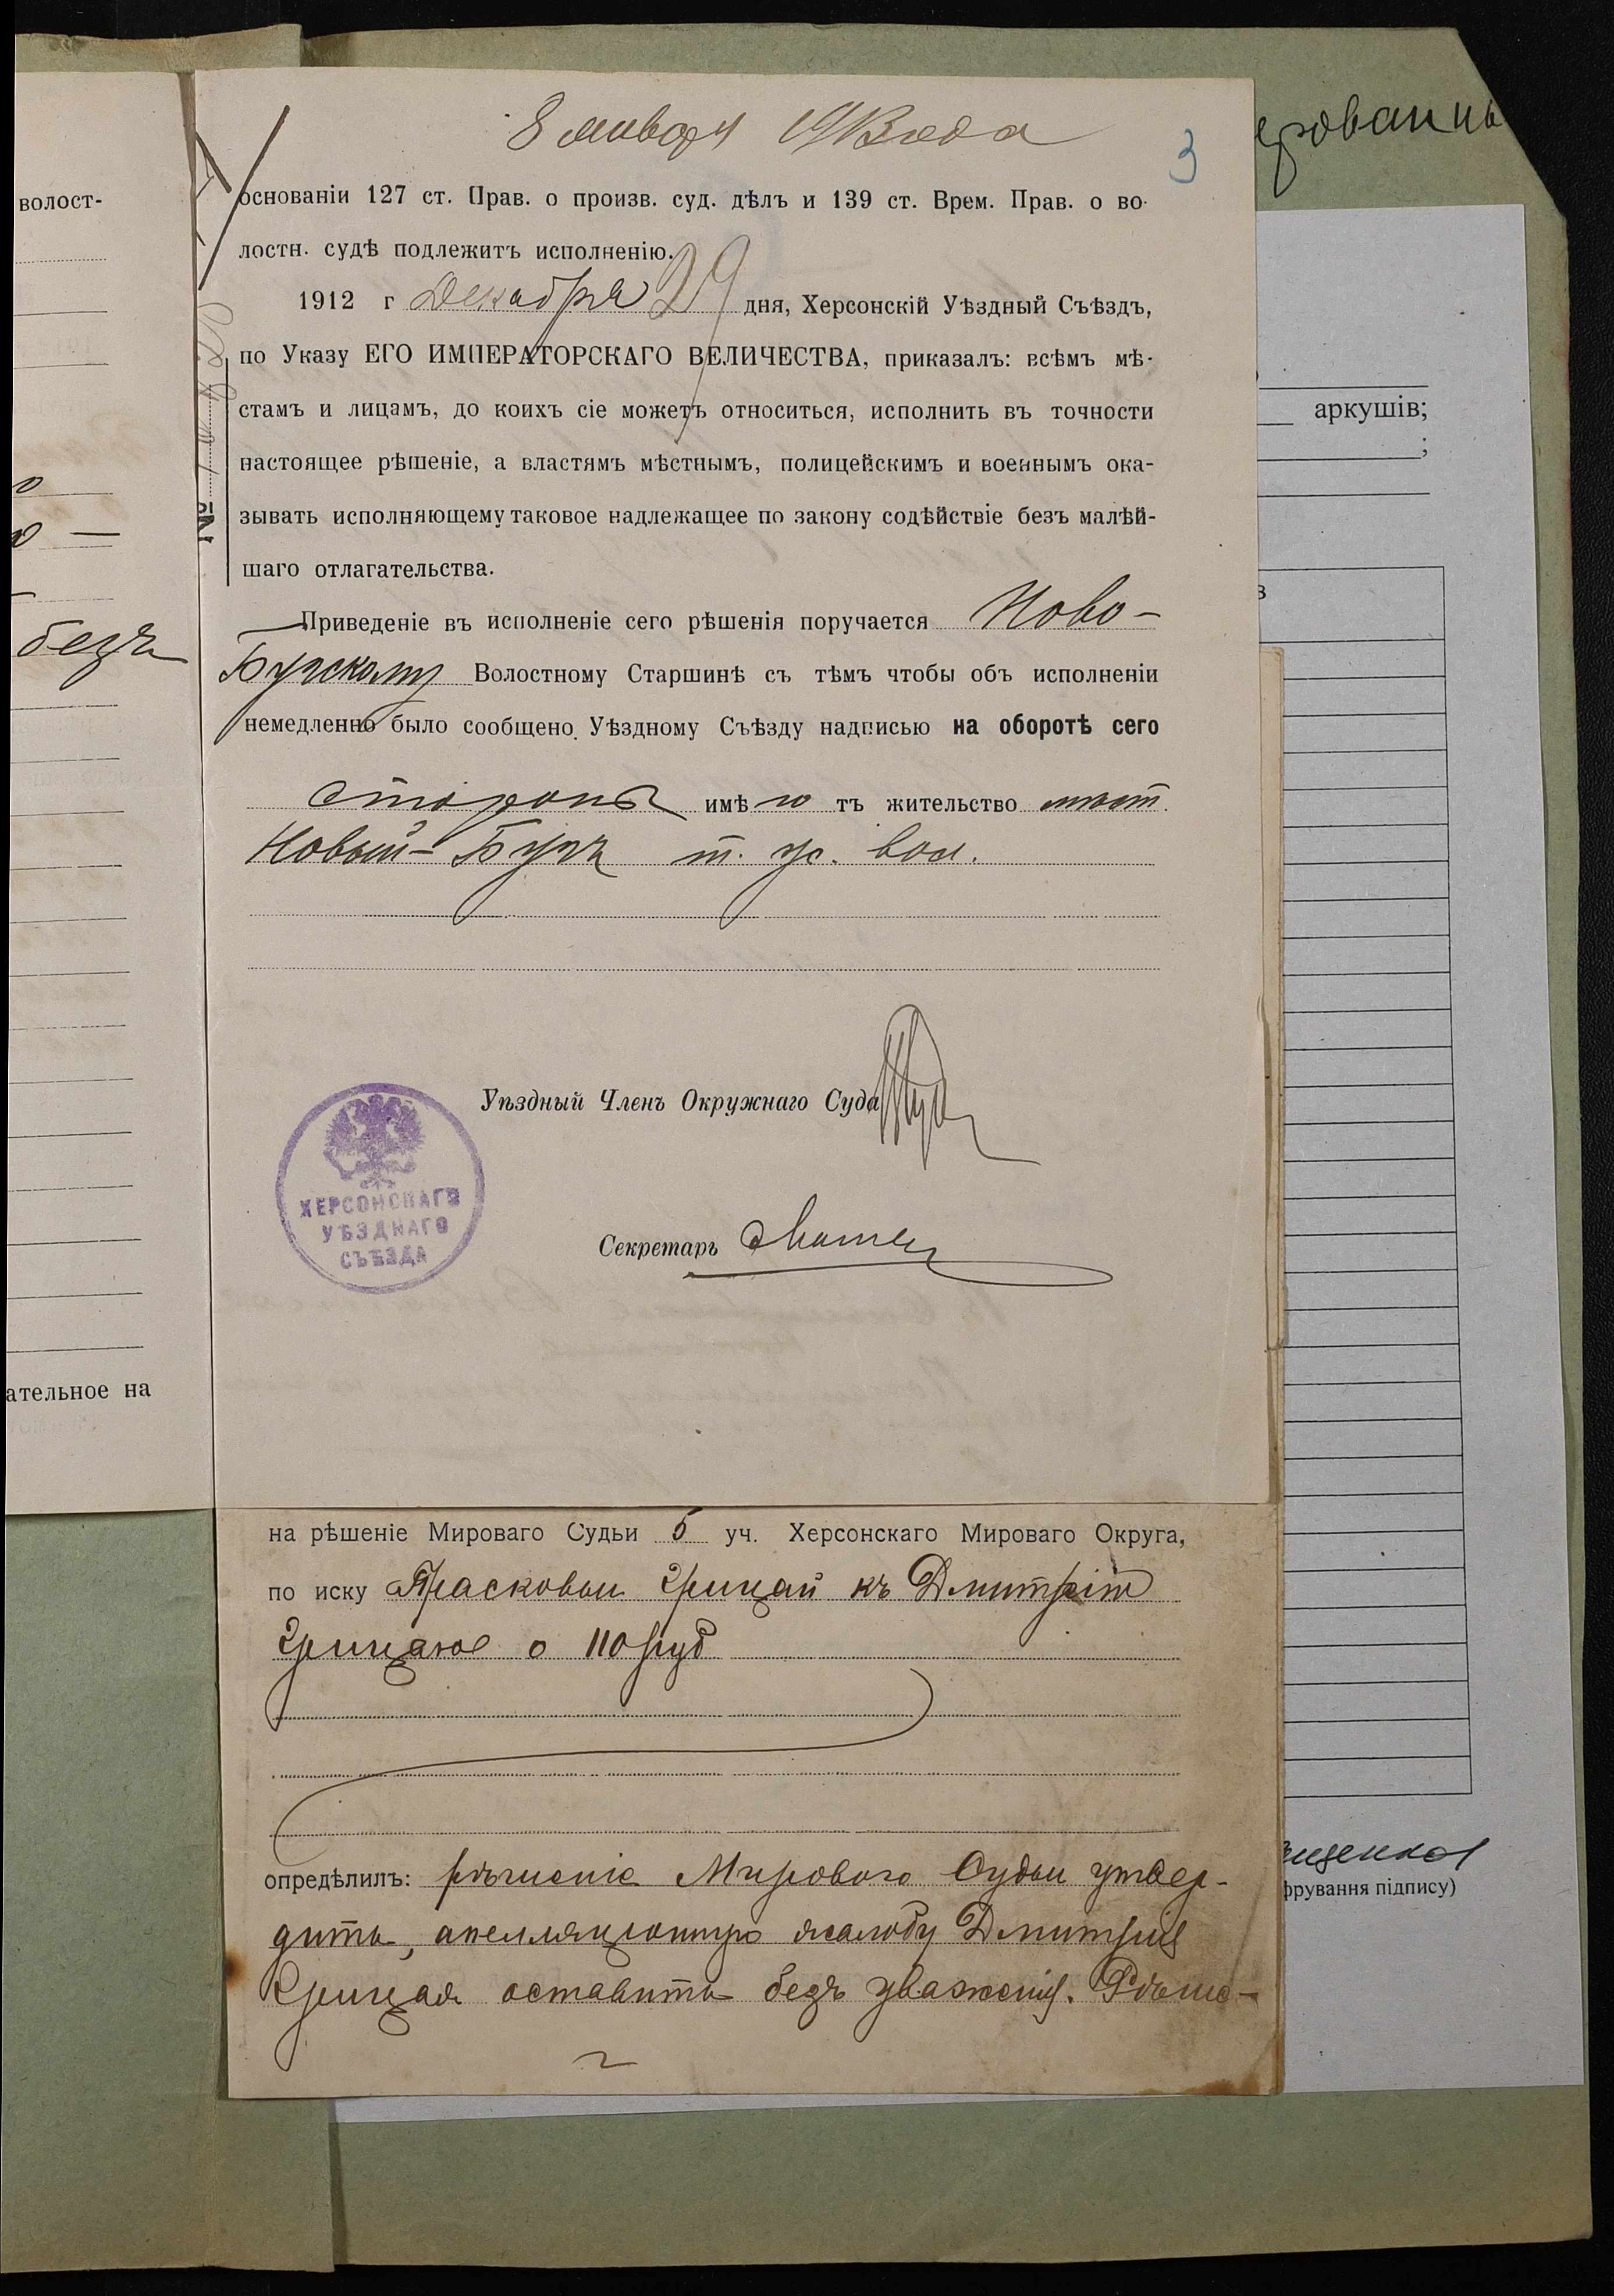 волост-
о
ю —
безъ
ательное на
8 января 1913 года
3
основаніи 127 ст. Прав. о произв. суд. дѣлъ и 139 ст. Врем. Прав. о во-
лостн. судѣ подлежитъ исполненію.
1912 г Декабря 29 дня, Херсонскій Уѣздный Съѣздъ,
по Указу ЕГО ИМПЕРАТОРСКАГО ВЕЛИЧЕСТВА, приказалъ: всѣмъ мѣ-
стамъ и лицамъ, до коихъ сіе можетъ относиться, исполнить въ точности
настоящее рѣшеніе, а властямъ мѣстнымъ, полицейскимъ и военнымъ ока-
зывать исполняющему таковое надлежащее по закону содѣйствіе безъ малѣй-
шаго отлагательства.
Приведеніе въ исполненіе сего рѣшенія поручается Ново-
Бугскому Волостному Старшинѣ съ тѣмъ чтобы объ исполненіи
немедленно было сообщено Уѣздному Съѣзду надписью на оборотѣ сего
Стороны имѣютъ жительство мѣст.
Новый-Бугъ т. ж. вол.
Уѣздный Членъ Окружнаго Суда
ХЕРСОНСКАГО
УѢЗДНАГО
СЪѢЗДА
Секретарь
№
на рѣшеніе Мироваго Судьи 5 уч. Херсонскаго Мироваго Округа,
по иску Прасковьи Грицай къ Дмитрію
Грицаю о 110 руб
опредѣлилъ: рѣшеніе Мирового Судьи утвер-
дить, апелляціонную жалобу Дмитрія
Грицая оставить безъ уваженія. Рѣше-
аркушів;
;
в
фрування підпису)